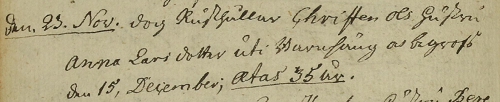 den. 23. Nov. dog Rusthållar Christen Ols hustru
Anna Lars dotter uti Barnhäng as begrofs
den 15, December, ætas 35 år.